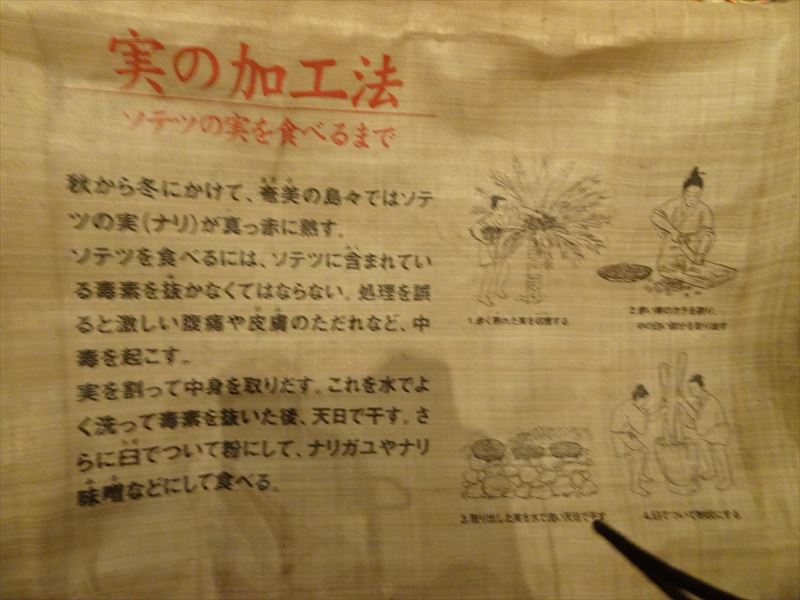 実の加工法
ソテツの実を食べるまで
秋から冬にかけて、奄美の島々ではソテ
ツの実(ナリ)が真っ赤に熟す。
ソテツを食べるには、ソテツに含まれてい
る毒素を抜かなくてはならない。処理を誤
ると激しい腹痛や皮膚のただれなど、中
毒を起こす。
実を割って中身を取りだす。これを水でよ
く洗って毒素を抜いた後、天日で干す。さ
らに臼でついて粉にして、ナリガユやナリ
味噌などにして食べる。
1.赤く熟れた実を収穫する
2.赤い実のカラを割り、
中の白い部分を取り出す
3.取り出した実を水で洗い天日で干す
4.臼でついて粉状にする